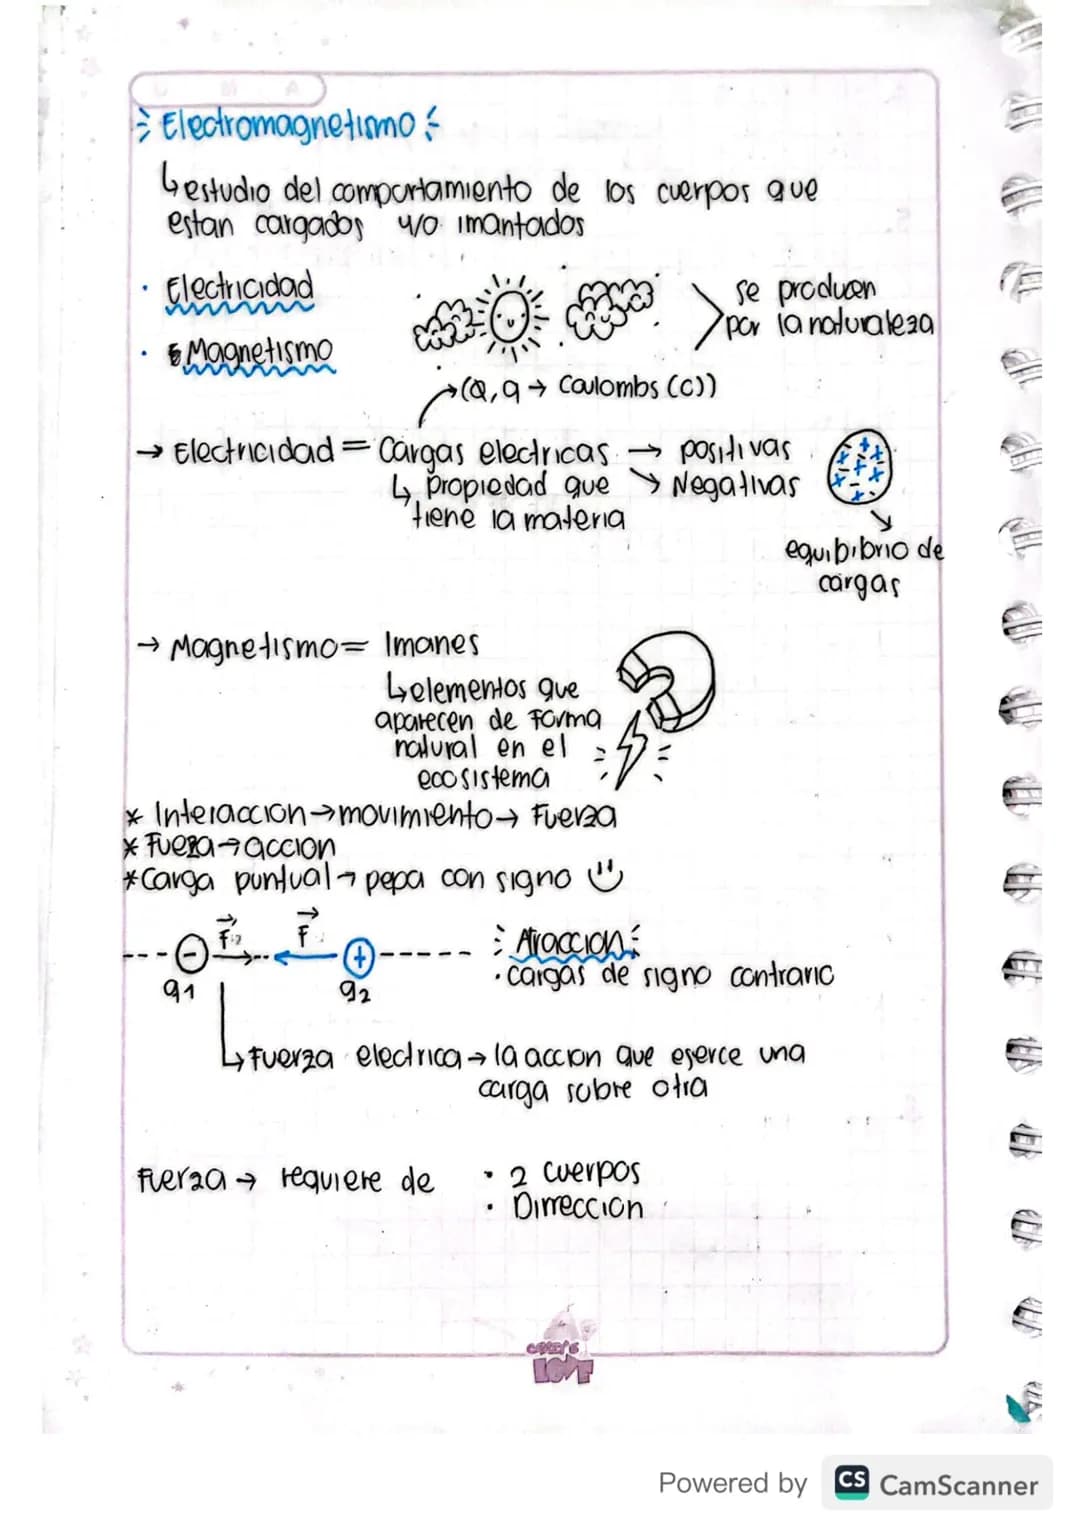 Electromagnetismo
↳estudio del comportamiento de los cuerpos que
estan cargados y/o imantados
· Electricidad
· Magnetismo
se producen
por la naturaleza
→(Q,q → Coulombs (C))
→ Electricidad = Cargas electricas → positivas
↳ Propiedad que ↘ Negativas
tiene la materia
equibibrio de
cargas
→ Magnetismo = Imanes
↳elementos que
aparecen de forma
natural en el
ecosistema
* Interaccion→movimiento→ Fuerza
* Fueza→accion
*Carga puntual→ pepa con signo
F F
- +
q1 q2
Atraccion
·cargas de signo contrario
↳fuerza electrica→la accion que eserce una
carga sobre otra
Fuerza → requiere de · 2 cuerpos
· Dirreccion
LOVE
Powered by CS CamScanner